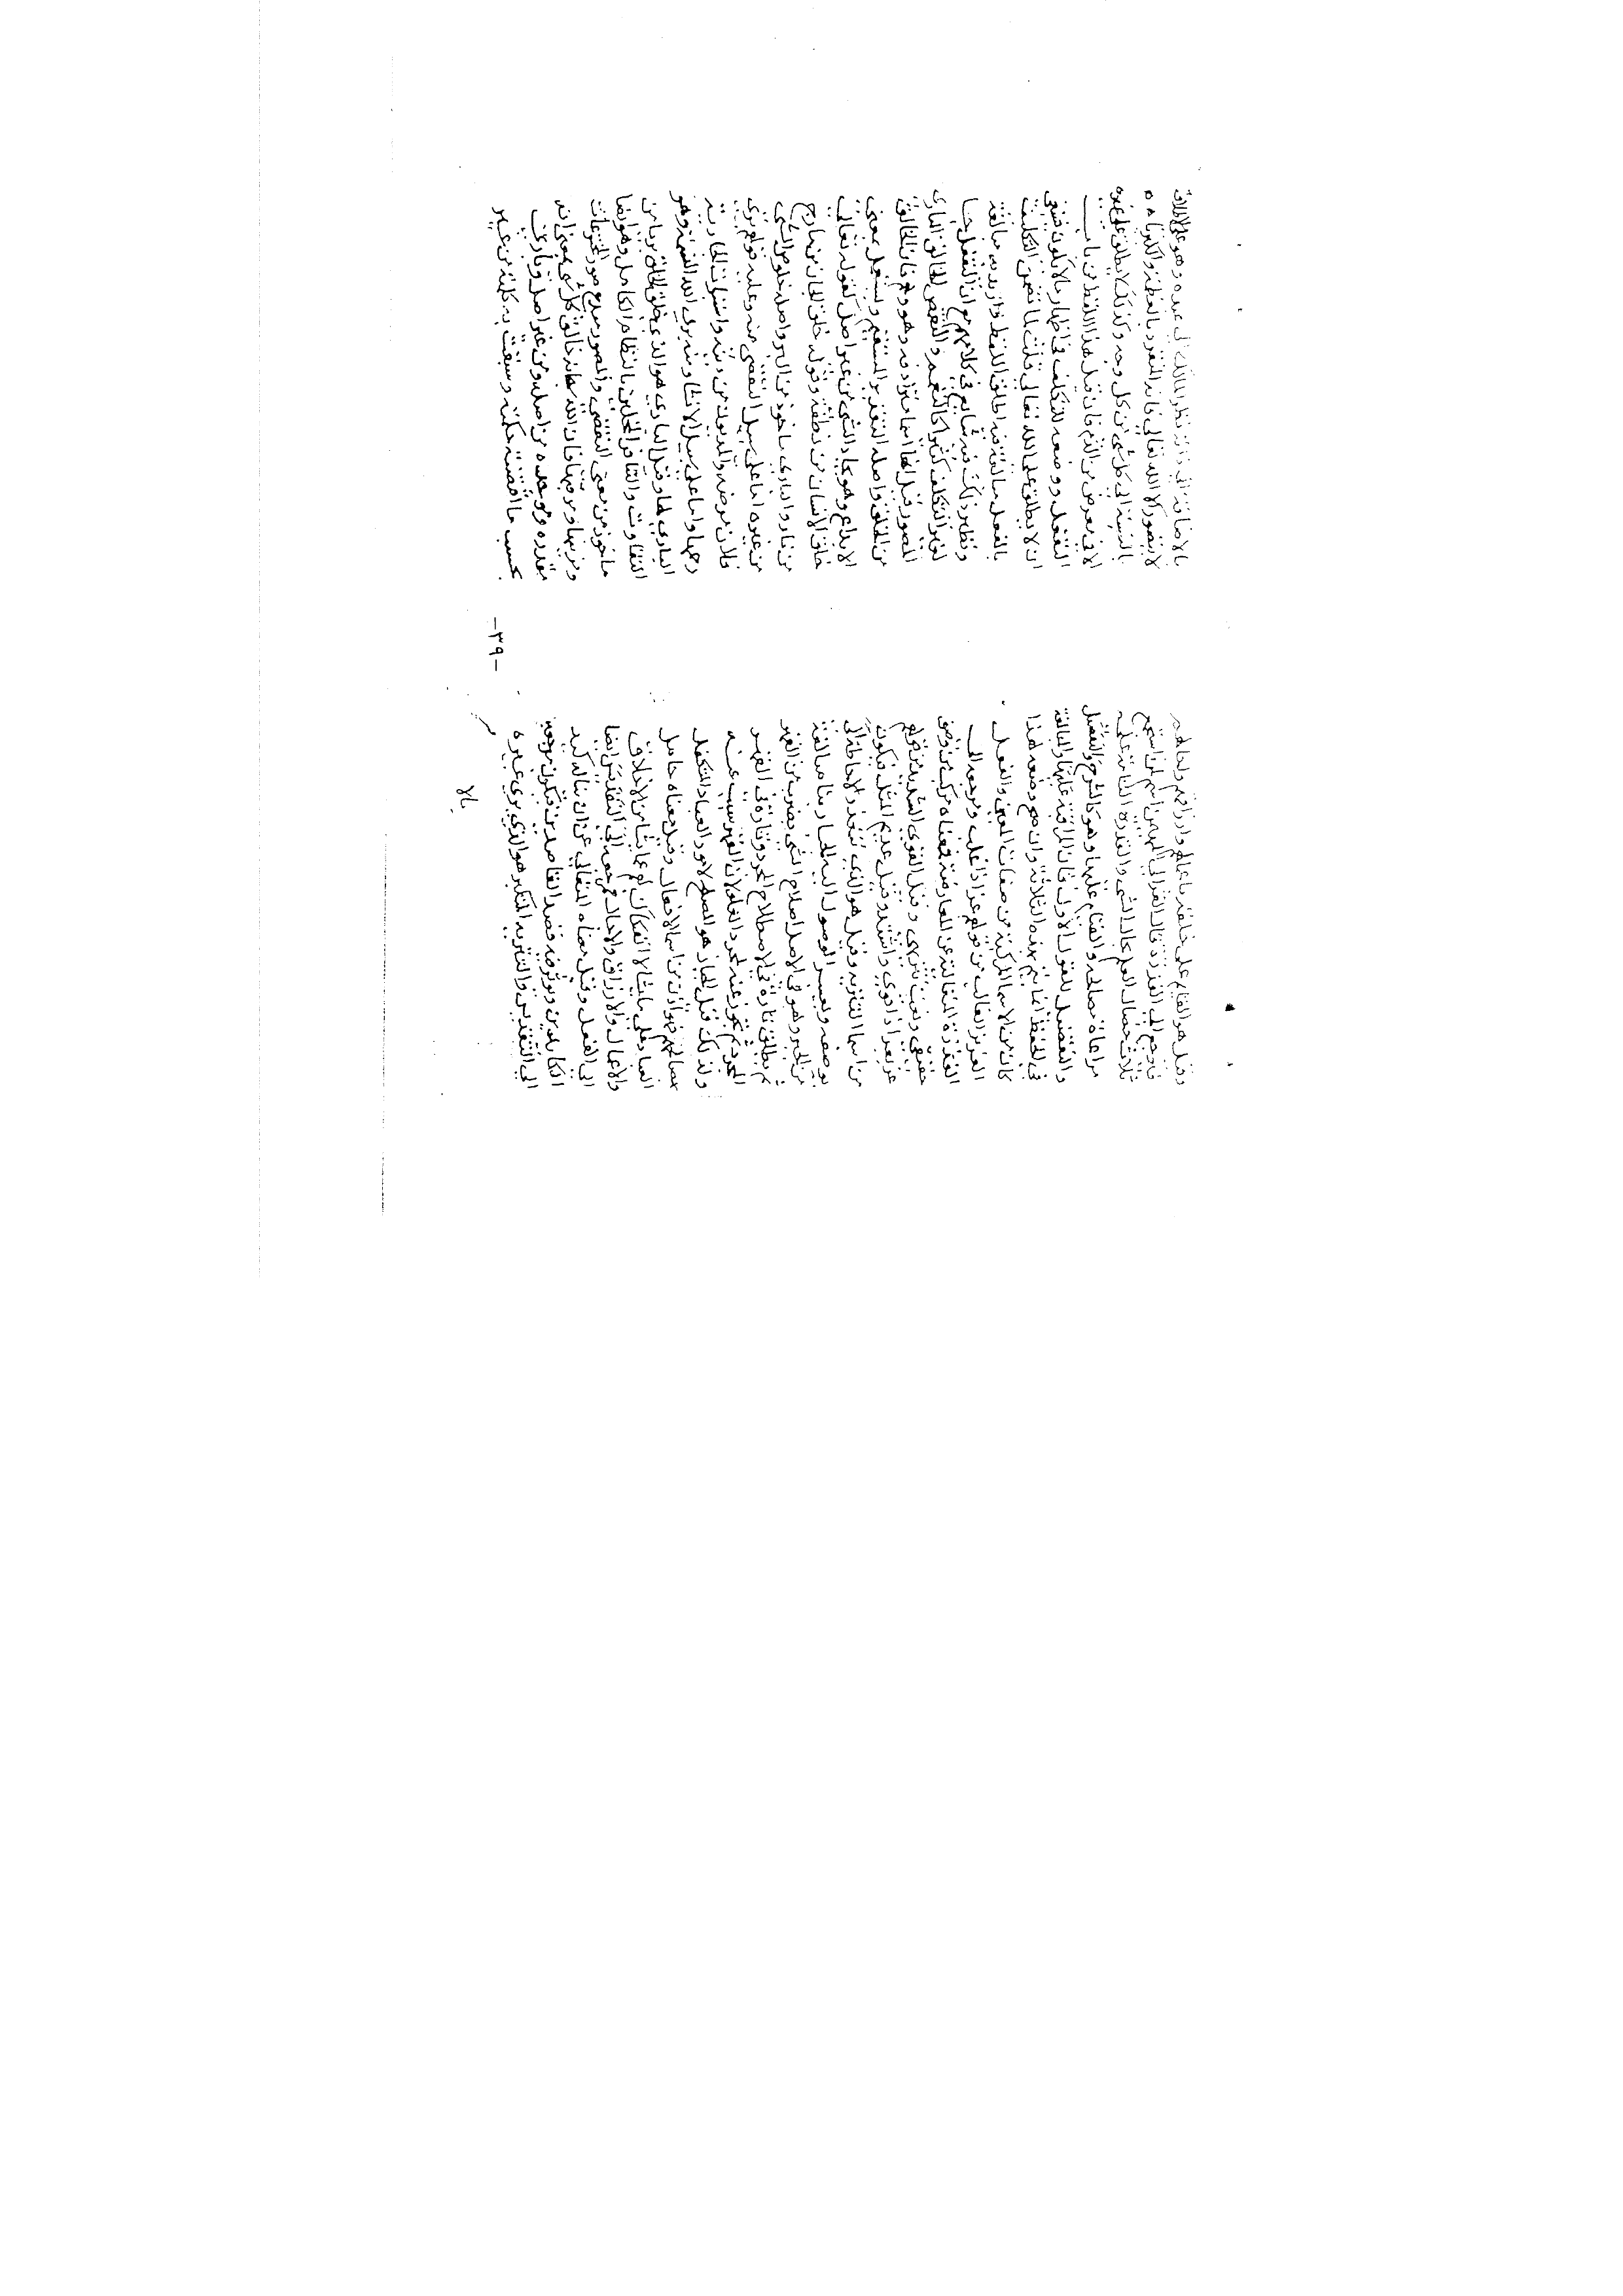 وقيل هو القائم على خلقه باعمالهم وارزاقهم واجالهم
فارجع الى القدرة قال الغزالي المهيمن اسم لمن استجمع
ثلاث خصال العلم بحال الشي والقدرة التامة على
مراعاة مصالحه والقيام عليها وهو كالشرح والتفصيل
والتفصيل للقول الاول فان المراقبة عليها والمبالغة
في الحفظ انما يتم بهذه الثلاثة وان صح وضعه لهذا
كان من الاسما المركبة من صفات المعنى والفعل
العزيز الغالب من قولهم عز اذا غلب ومرجعه الى
القدرة المتعالية عن المعارضة فمعناه مركب من وصف
حقيقي ونعت تنزيهي وقيل القوي الشديد من قولهم
عز يعز اذا قوي واشتد وقيل عديم المثل فيكون
من اسما التنزيه وقيل هو الذي تتعذر الاحاطة
بوصفه ويعسر الوصول اليه الجبار بنا مبالغة
من الجبر وهو في الاصل اصلاح الشي بضرب من القهر
ثم يطلق تارة في الاصلاح المجرد وتارة في القهر
المجرد ثم تجوز عنه لمجرد العلو لان القهر سبب عنه
ولذلك قيل الجبار هو المصلح لامور العباد المتكفل
بمصالحهم فهو اذن من اسما الافعال وقيل معناه حامل
العباد على ما يشا لا انفكاك لهم عما يشا من الاخلاق
والاعمال والارزاق والاجال فمرجعه الى التقديس ايضا
الى الفعل وقيل معناه المتعالي عن ان يناله كيد
الكايدين ويؤثر فيه قصد القاصدين فيكون مرجعه
الى التقديس والتنزيه المتكبر هو الذي يرى غيره
بالا
-٣٩-
بالاضافة الى ذاته نظر المالك الى عبده وهو على الاطلاق
لا يتصور الا لله تعالى فانه المتفرد بالعظمة والكبرياء
بالنسبة الى كل شي من كل وجه ولذلك لا يطلق على غيره
الا في معرض الذم فان قيل هذا اللفظ من باب
التفعل ووضعه للتكلف في اظهار ما لا يكون فينبغي
ان لا يطلق على الله تعالى قلت لما تضمن التكلف
بالفعل مبالغة فيه اطلق اللفظ واريد به مبالغة
ونظير ذلك فيه شايع في كلامهم مع ان التفعل جا
لغير التكلف كثيرا كالتعمم والتقمص الخالق الباري
المصور قيل انها اسما مترادفة وهو وهم فان الخالق
من الخلق واصله التقدير المستقيم ويستعمل بمعنى
الابداع وهو ايجاد الشي من غير اصل كقوله تعالى
خلق الانسان من نطفة وقوله خلق الجان من مارج
من نار والباري ماخوذ من البرء واصله خلوص الشي
من غيره اما على سبيل التفصي عنه وعليه قولهم بري
فلان من مرضه والمديون من دينه واستبرات الجارية
رحمها واما على سبيل الانشا ومنه بري الله النسمة وهو
الباري لها وقيل الباري هو الذي خلق الخلق بريا من
التفاوت والتنافر المخلين بالنظام الكامل وهو ايضا
ماخوذ من معنى التفصي والمصور مبدع صور المخترعات
ومزينها ومرتبها فان الله سبحانه خالق كل شي بمعنى انه
مقدره وموجده من اصل ومن غير اصل وباريه
بحسب ما اقتضته حكمته وسبقت به كلمته من غير